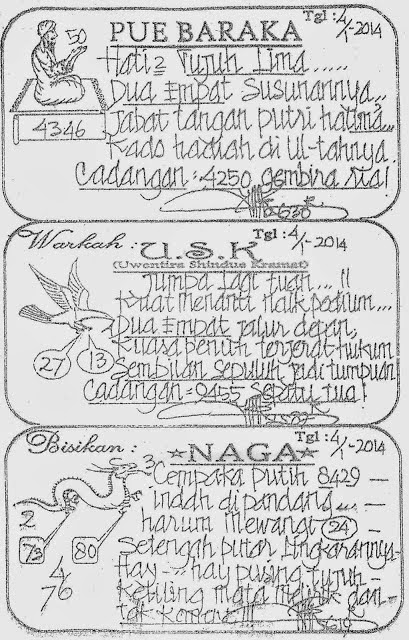 Tgl : 4/1-2014
50
PUE BARAKA
Hati2 Tujuh Lima.....
Dua Empat Susunannya...
4346
Jabat tangan putri halima...
Kado hadiah di Ul-tahnya.
Cadangan : 4250 gembira ria!
Warkah :
Tgl : 4/1-2014
U.S.K
(Uwentira Shindue Kramat)
Jumpa lagi tuan... !!
Kuat menanti naik podium...
Dua Empat jalur depan,
27
13
Kuasa penuh terjerat hukum
Sembilan Sepuluh jadi tumpuan
Cadangan = 9455 sepatu tua!
Bisikan :
Tgl : 4/1-2014
NAGA
3
Cempaka putih 8429 —
indah dipandang... —
2
harum mewangi 24 —
73
80
Setengah putar lingkarannya-
Hay - hay pusing tujuh -
4
76
Keliling mata dari -